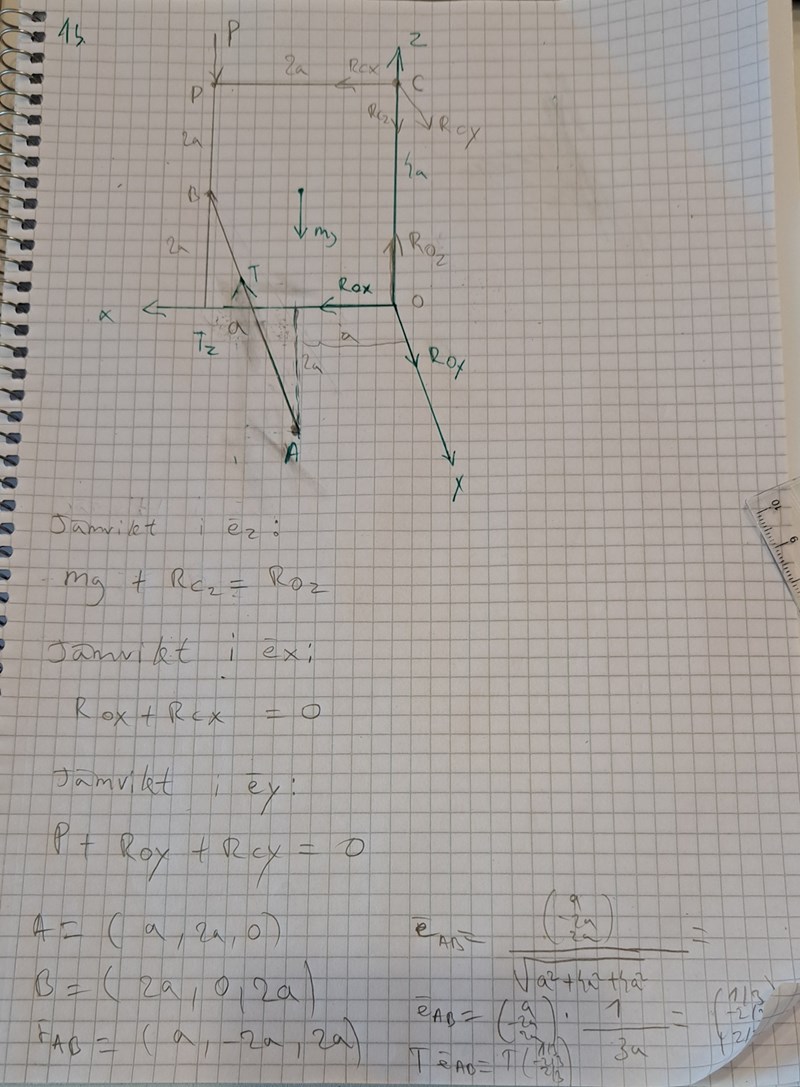 P
z
2a
Rcx
C
P
Rcz
Rcy
2a
4a
B
mg
ROz
2a
T
ROX
O
x
a
a
Tz
2a
ROY
A
y
Jämvikt i ēz:
mg + Rcz = ROz
Jämvikt i ēx:
ROX + RCX = 0
Jämvikt i ēy:
P + ROY + RCY = 0
A = (a, 2a, 0)
B = (2a, 0, 2a)
r̄AB = (a, -2a, 2a)
ēAB = (a -2a 2a) / √a²+4a²+4a² =
ēAB = (a -2a 2a) · 1/3a = (1/3 -2/3 2/3)
T ēAB = T (1/3 -2/3 2/3)